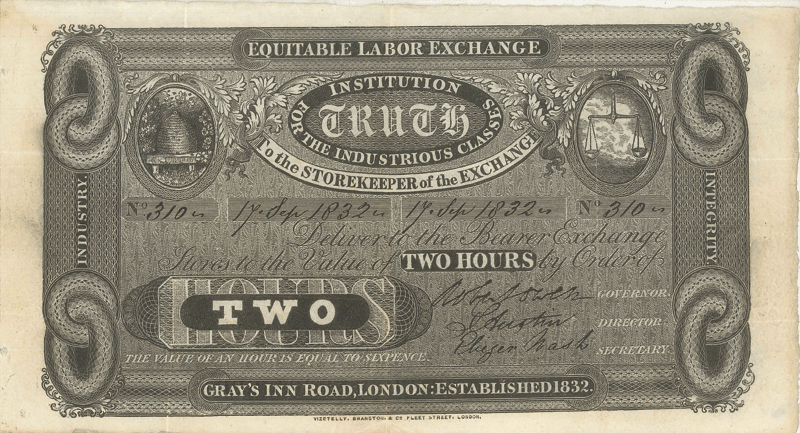 EQUITABLE LABOR EXCHANGE
INSTITUTION
TRUTH
FOR THE INDUSTRIOUS CLASSES
To the STOREKEEPER of the EXCHANGE
No 310 17 Sep 1832 17 Sep 1832 No 310
Deliver to the Bearer Exchange
Stores to the Value of TWO HOURS by Order of
HOURS
TWO
Robt Owen GOVERNOR.
J Austin DIRECTOR.
Ebezer Nash SECRETARY.
THE VALUE OF AN HOUR IS EQUAL TO SIXPENCE.
INDUSTRY.
INTEGRITY
GRAY'S INN ROAD, LONDON: ESTABLISHED 1832.
VIZETELLY, BRANSTON, & Co FLEET STREET, LONDON.